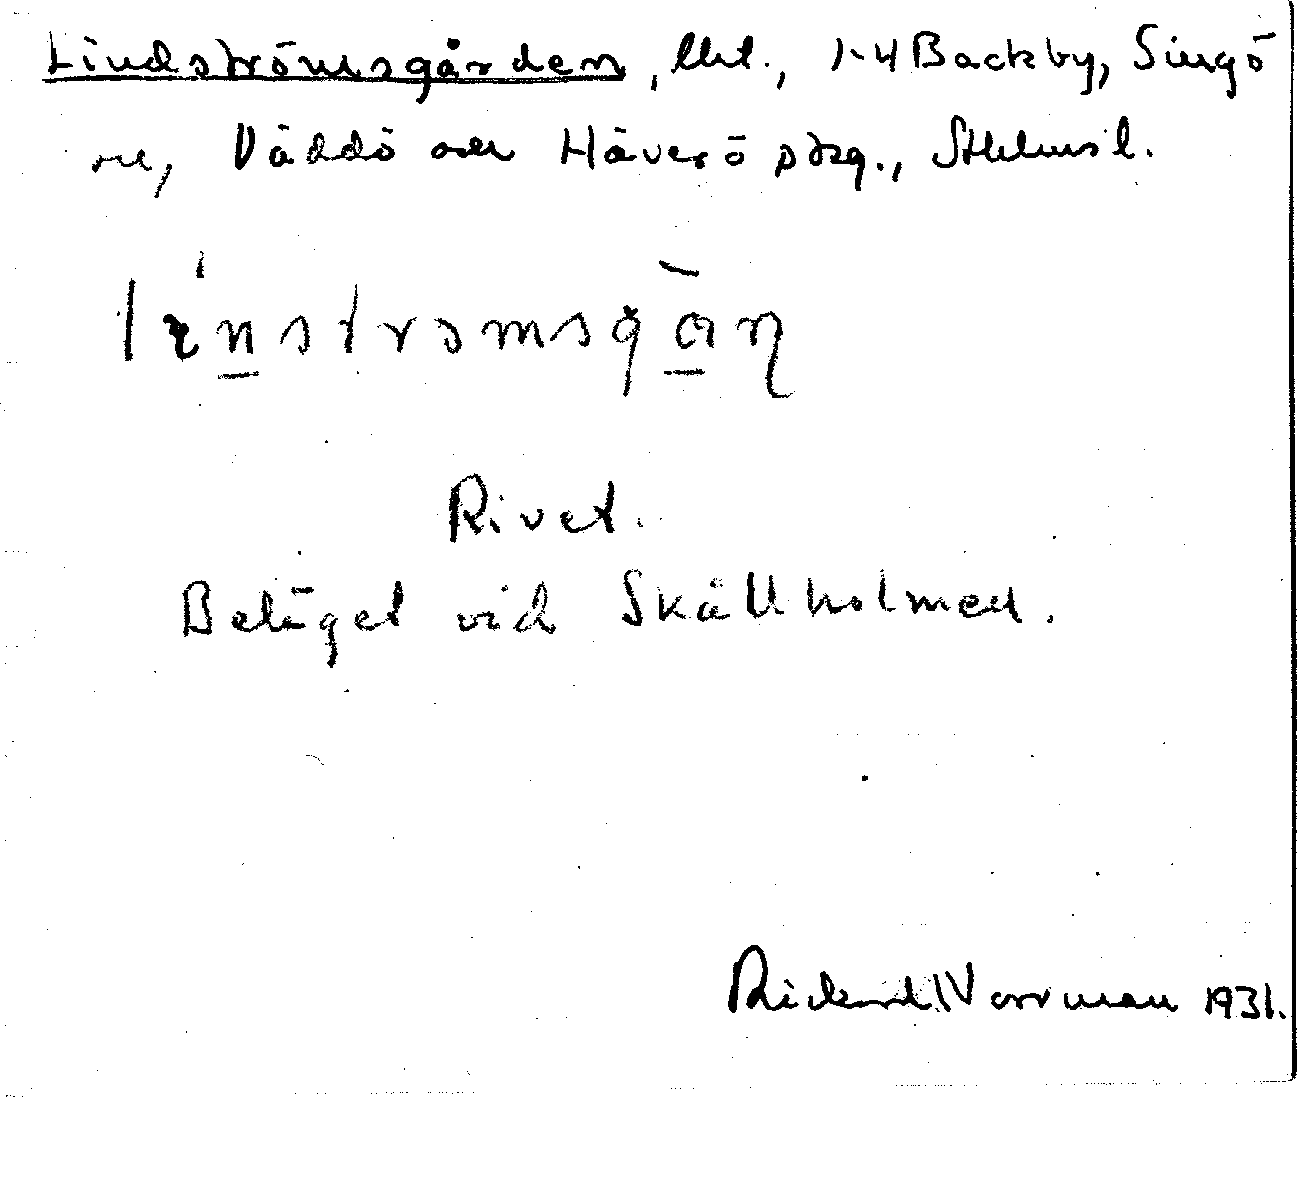 Lindströmsgården, lht., 1-4 Backby, Singö
sn, Väddö och Häverö skg., Sthlms l.
Rivet.
Beläget vid Skällholmen.
Rickard Norrman 1931.